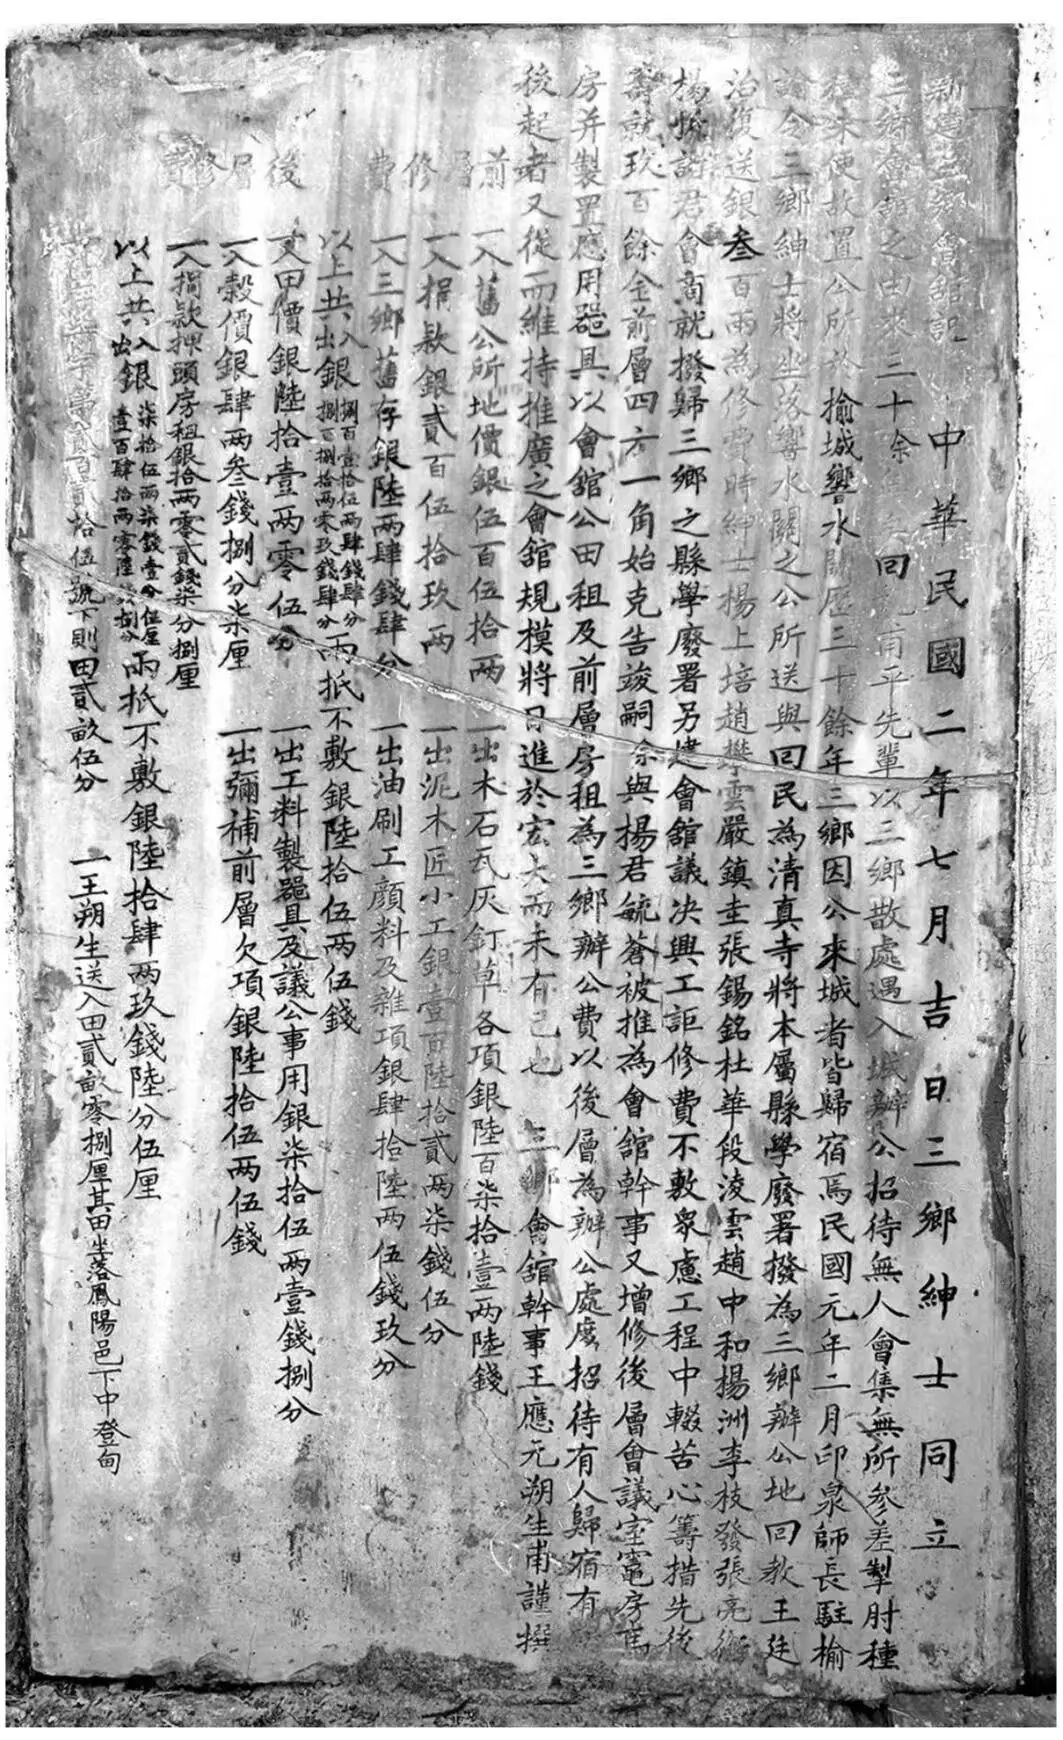 新建三鄉會館記 中華民國二年七月吉日三鄉紳士同立
三鄉會館之由來三十余 回 南平先輩以三鄉散處遇入城辦公招待無人會集無所參差掣肘種
種未便故置公所於榆城響水關歷三十餘年三鄉因公來城者皆歸宿焉民國元年二月印泉師長駐榆
諭令三鄉紳士將坐落響水關之公所送與回民為清真寺將本屬縣學廢署撥為三鄉辦公地回教王廷
治復送銀叁百兩為修費時紳士楊上培趙攀雲嚴鎮圭張錫銘杜華段淩雲趙中和楊洲李枝發張亮
楊 諸君會商就撥歸三鄉之縣學廢署另建會館議決興工詎修費不敷眾慮工程中輟苦心籌措先後
籌就玖百餘金前層四方一角始克告竣嗣余與楊君毓蒼被推為會館幹事又增修後層會議室竈房馬
房并製置應用器具以會舘公田租及前層房租為三鄉辦公費以後層為辦公處廋招待有人歸宿有
後起者又從而維持推廣之會舘規模將日進於宏大而未有已也 三鄉會舘幹事王應元朔生甫謹撰
前層修費
一入舊公所地價銀伍百伍拾兩 一出木石瓦灰釘草各項銀陸百柒拾壹兩陸錢
一入捐款銀貳百伍拾玖兩 一出泥木匠小工銀壹百陸拾貳兩柒錢伍分
一入三鄉舊存銀陸兩肆錢肆分 一出油刷工顏料及雜項銀肆拾陸兩伍錢玖分
以上共入出銀捌百壹拾伍兩肆錢肆分捌百捌拾兩零玖錢肆分兩抵不敷銀陸拾伍兩伍錢
後層修費
一入田價銀陸拾壹兩零伍分 一出工料製器具及議公事用銀柒拾伍兩壹錢捌分
一入穀價銀肆兩叁錢捌分柒厘 一出彌補前層欠項銀陸拾伍兩伍錢
一入捐款押頭房租銀拾兩零貳錢柒分捌厘
以上共入出銀柒拾伍兩柒錢壹分伍厘壹百肆拾兩零陸 捌分兩抵不敷銀陸拾肆兩玖錢陸分伍厘
貳百貳拾伍號下則田貳畝伍分 一王朔生送入田貳畝零捌厘其田坐落鳳陽邑下中登甸